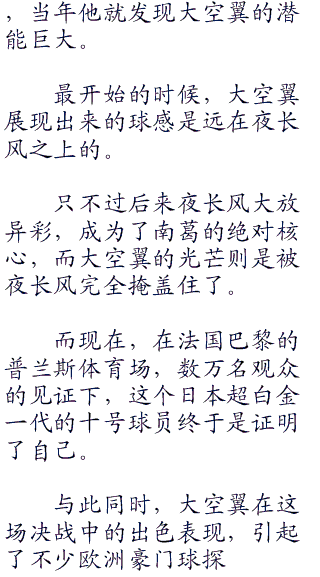 ，当年他就发现大空翼的潜
能巨大。
最开始的时候，大空翼
展现出来的球感是远在夜长
风之上的。
只不过后来夜长风大放
异彩，成为了南葛的绝对核
心，而大空翼的光芒则是被
夜长风完全掩盖住了。
而现在，在法国巴黎的
普兰斯体育场，数万名观众
的见证下，这个日本超白金
一代的十号球员终于是证明
了自己。
与此同时，大空翼在这
场决战中的出色表现，引起
了不少欧洲豪门球探